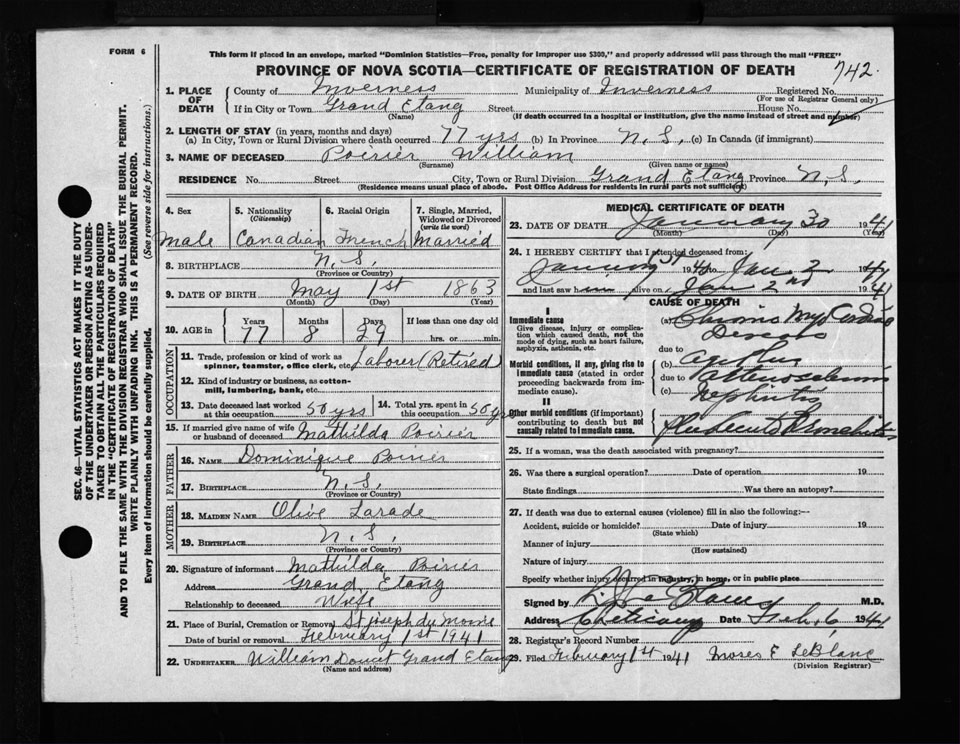 FORM 6
This form if placed in an envelope, marked "Dominion Statistics—Free, penalty for improper use $300," and properly addressed will pass through the mail "FREE"
PROVINCE OF NOVA SCOTIA—CERTIFICATE OF REGISTRATION OF DEATH
742.
SEC. 46—VITAL STATISTICS ACT MAKES IT THE DUTY
OF THE UNDERTAKER OR PERSON ACTING AS UNDER-
TAKER TO OBTAIN ALL THE PARTICULARS REQUIRED
IN THE "CERTIFICATE OF REGISTRATION OF DEATH"
AND TO FILE THE SAME WITH THE DIVISION REGISTRAR WHO SHALL ISSUE THE BURIAL PERMIT.
WRITE PLAINLY WITH UNFADING INK. THIS IS A PERMANENT RECORD.
Every item of information should be carefully supplied. (See reverse side for instructions.)
1. PLACE OF DEATH
County of Inverness Municipality of Inverness Registered No.
(For use of Registrar General only)
If in City or Town Grand Etang Street House No.
(Name) (If death occurred in a hospital or institution, give the name instead of street and number)
2. LENGTH OF STAY (in years, months and days)
(a) In City, Town or Rural Division where death occurred 77 yrs (b) In Province N.S. (c) In Canada (if immigrant)
3. NAME OF DECEASED Poirier William
(Surname) (Given name or names)
RESIDENCE No. Street City, Town or Rural Division Grand Etang Province N.S.
(Residence means usual place of abode. Post Office Address for residents in rural parts not sufficient)
4. Sex 5. Nationality (Citizenship) 6. Racial Origin 7. Single, Married, Widowed or Divorced (write the word)
Male Canadian French Married
8. BIRTHPLACE N.S.
(Province or Country)
9. DATE OF BIRTH May 1st 1863
(Month) (Day) (Year)
10. AGE in Years Months Days If less than one day old
77 8 29 hrs. or min.
OCCUPATION
11. Trade, profession or kind of work as spinner, teamster, office clerk, etc. Labourer / Retired
12. Kind of industry or business, as cotton-mill, lumbering, bank, etc.
13. Date deceased last worked at this occupation 50 yrs 14. Total yrs. spent in this occupation 50 yrs
15. If married give name of wife or husband of deceased Mathilda Poirier
FATHER
16. NAME Dominique Poirier
17. BIRTHPLACE N.S.
(Province or Country)
MOTHER
18. MAIDEN NAME Olive Larade
19. BIRTHPLACE N.S.
(Province or Country)
20. Signature of informant Mathilda Poirier
Address Grand Etang
Relationship to deceased Wife
21. Place of Burial, Cremation or Removal St Joseph du Moine
Date of burial or removal February 1st 1941
22. UNDERTAKER William Doucet Grand Etang
(Name and address)
MEDICAL CERTIFICATE OF DEATH
23. DATE OF DEATH January 30 1941
(Month) (Day) (Year)
24. I HEREBY CERTIFY that I attended deceased from:
January 1940 to Jan 2 1941
and last saw him alive on Jan 2nd 1941
CAUSE OF DEATH
I
Immediate cause
Give disease, injury or complication which caused death, not the mode of dying, such as heart failure, asphyxia, asthenia, etc.
(a) Chronic Myocardial
Disease
due to
Morbid conditions, if any, giving rise to immediate cause (stated in order proceeding backwards from immediate cause).
(b)
due to Arteriosclerosis
(c) Nephritis
II
Other morbid conditions (if important) contributing to death but not causally related to immediate cause.
25. If a woman, was the death associated with pregnancy?
26. Was there a surgical operation? Date of operation 19
State findings Was there an autopsy?
27. If death was due to external causes (violence) fill in also the following:—
Accident, suicide or homicide? Date of injury 19
(State which)
Manner of injury
(How sustained)
Nature of injury
Specify whether injury occurred in industry, in home, or in public place
Signed by M.D.
Address Cheticamp Date Feb. 6 1941
28. Registrar's Record Number 7
29. Filed February 1st 1941 Moses F LeBlanc
(Division Registrar)